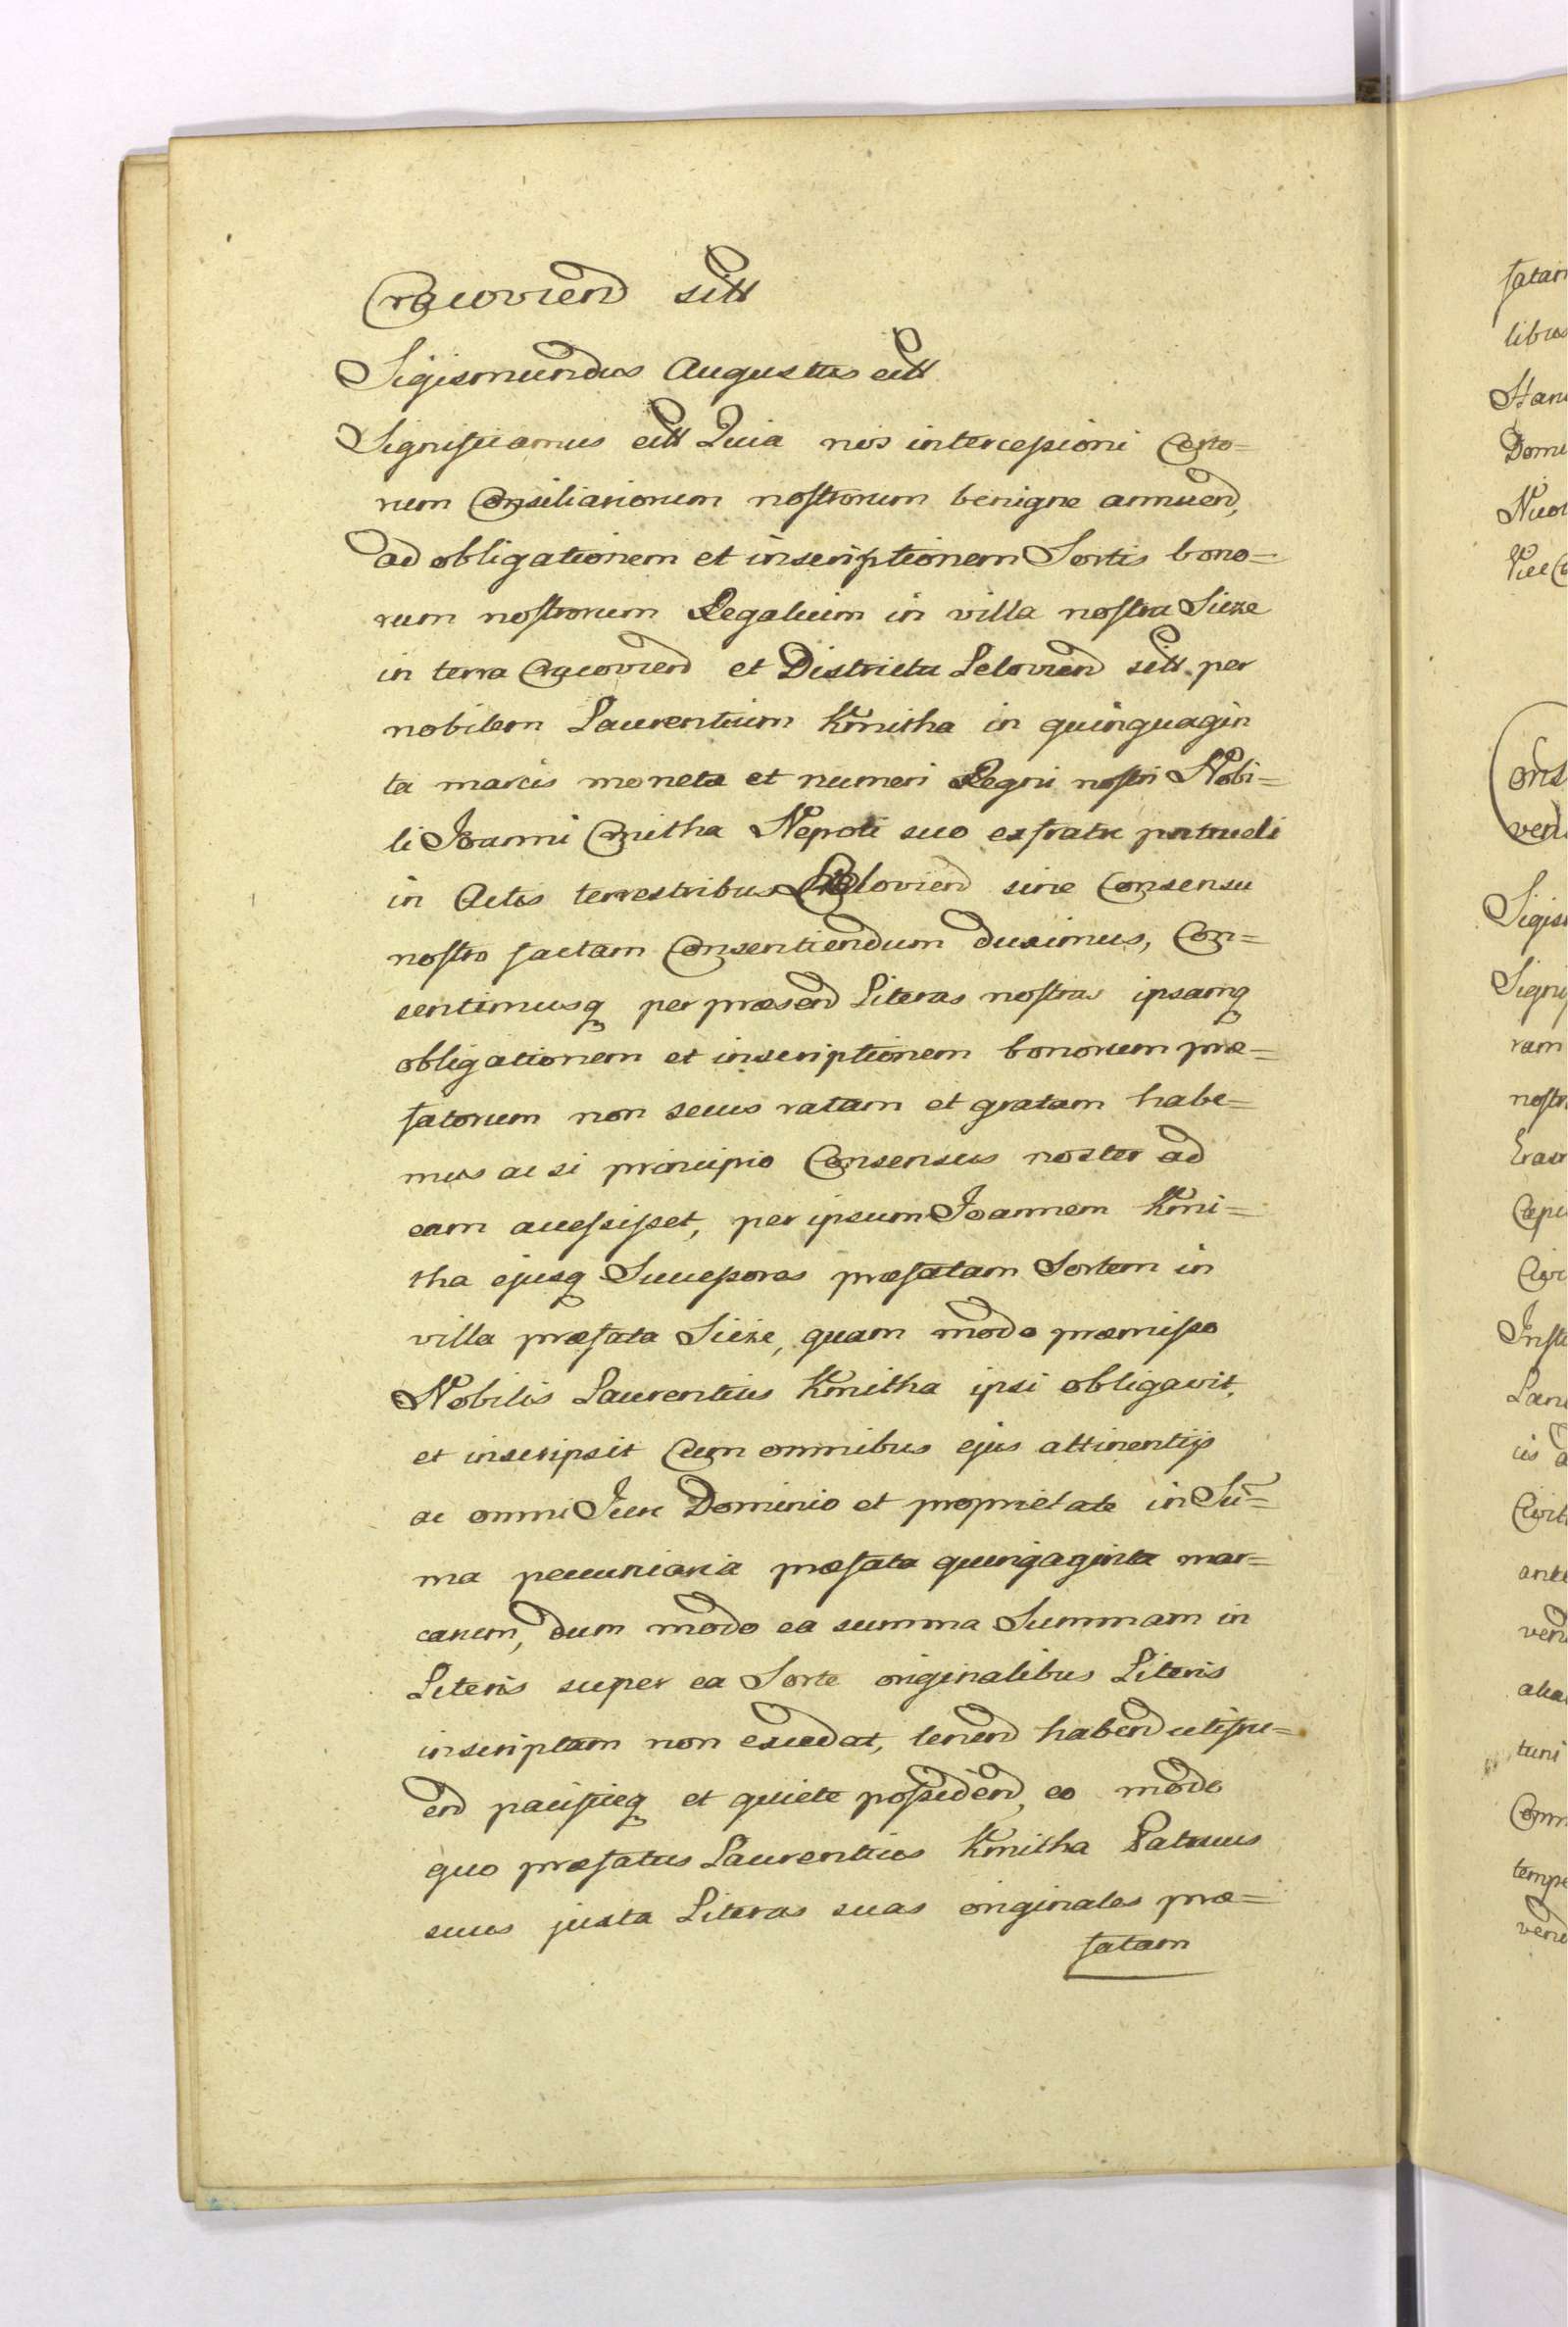 Cracoviend sitt
Sigismundus Augustus ett
Significamus ett Quia nos intercessioni Certo=
rum Consiliariorum nostrorum benigne annuend,
ad obligationem et inscriptionem Sortis bono=
rum nostrorum Regalium in villa nostra Sieze
in terra Cracoviend et Districtu Leloviend sitt per
nobilem Laurentium Kmitha in quinquagin
ta marcis moneta et numeri Regni nostri Nobi=
li Joanni Cmitha Nepoti suo ex fratre patrueli
in Actis terrestribus Leloviend sine Consensu
nostro factam Consentiendum duximus, Con=
sentimusq per præsend Literas nostras ipsamq
obligationem et inscriptionem bonorum præ=
fatorum non secus ratam et gratam habe=
mus ac si principio Consensus noster ad
eam accessisset, per ipsum Joannem Kmi=
tha ejusq Successores præfatam Sortem in
villa præfata Sieze, quam modo præmisso
Nobilis Laurentius Kmitha ipsi obligavit,
et inscripsit Cum omnibus ejus attinentijs
ac omni Jure Dominio et proprietate in Su=
ma pecuniaria præfata quinqaginta mar=
carum, dum modo ea summa Summam in
Literis super ea Sorte originalibus Literis
inscriptam non excedat, tenend habend utifru=
end pacificeq et quiete possidend, eo modo
quo præfatus Laurentius Kmitha Patruus
suus juxta Literas suas originales præ=
fatam
fatam
libus
Domi
Cons
vend
Sigis
Signi
ram
nostr
Capi
Civi
Insti
cis a
Civit
ante
vend
alia
tuni
Comm
tempo
vend